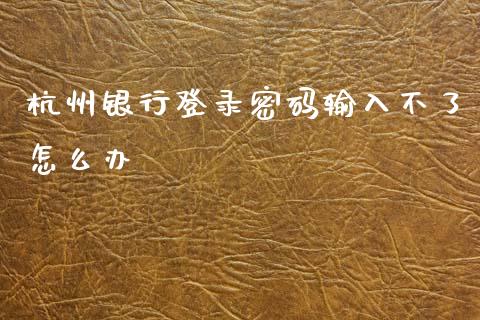 杭州银行登录密码输入不了
怎么办